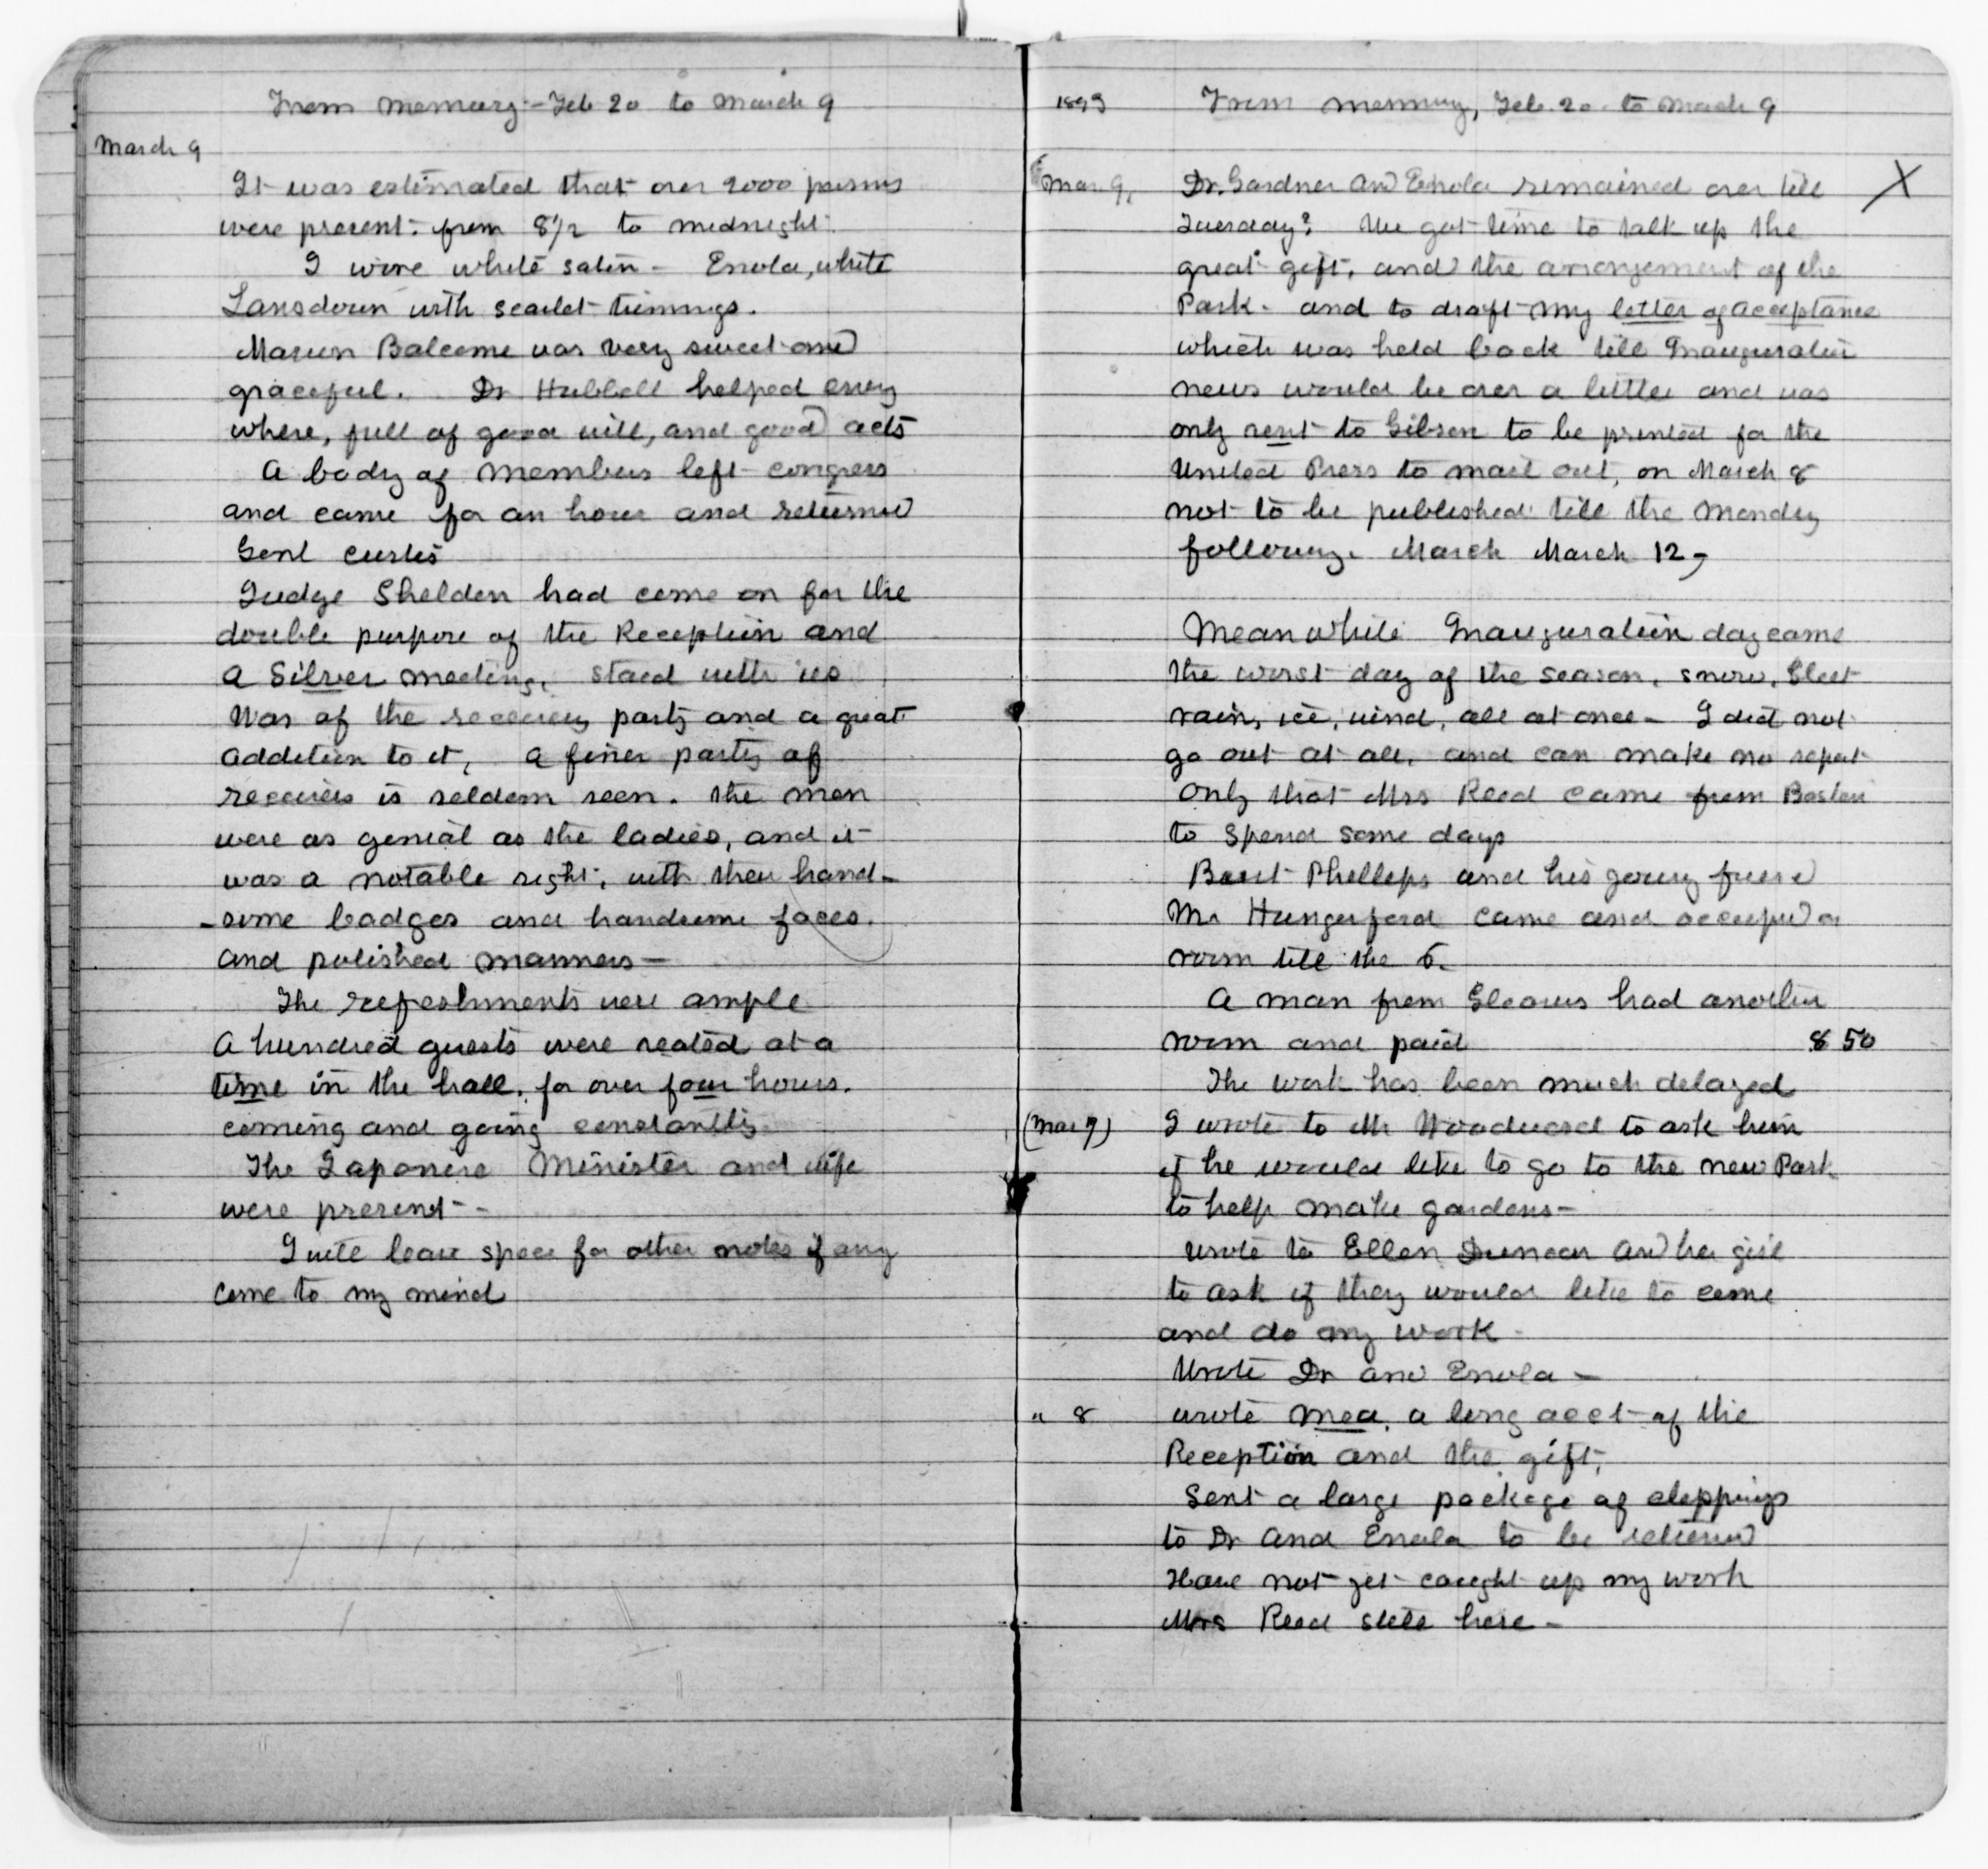 From memory - Feb 20 to March 9
March 9
It was estimated that over 2000 persons
were present. from 8 1/2 to midnight.
I wore white satin - Enola, white
Lansdown with scarlet trimmings.
Marion Balcome was very sweet and
graceful. Dr Hubbell helped every
where, full of good will, and good acts
A body of members left congress
and came for an hour and returned
Genl Curtis
Judge Sheldon had come on for the
double purpose of the Reception and
a Silver meeting, staid with us
Was of the receiving party and a great
addition to it, A finer party of
receivers is seldom seen. the men
were as genial as the ladies, and it
was a notable sight, with their hand-
-some badges and handsome faces.
and polished manners -
The refreshments were ample
A hundred guests were seated at a
time in the hall, for over four hours.
coming and going constantly
The Japanese Minister and wife
were present -
I will leave space for other notes if any
come to my mind
1893 From memory, Feb. 20 to March 9
Mar. 9, Dr. Gardner and Enola remained over till X
Tuesday? We got time to talk up the
great gift, and the arrangement of the
Park - and to draft my letter of acceptance
which was held back till Inauguration
news would be over a little and was
only sent to Gibson to be printed for the
United Press to mail out, on March 8
not to be published till the Monday
following. March March 12,
Meanwhile Inauguration day came
the worst day of the season, snow, sleet
rain, ice, wind, all at once - I did not
go out at all, and can make no report
only that Mrs Reed came from Boston
to spend some days
Phillips and his young friend
Mr Hungerford came and occupied a
room till the 6.
A man from had another
room and paid 8 50
The work has been much delayed
(Mar 7) I wrote to Mr Woodward to ask him
if he would like to go to the new Park
to help make gardens -
Wrote to Ellen Duncan and her girl
to ask if they would like to come
and do my work -
Wrote Dr and Enola -
" 8 wrote Med, a long acct of the
Reception and the gift,
Sent a large package of clippings
to Dr and Enola to be returned
Have not yet caught up my work
Mrs Reed still here -